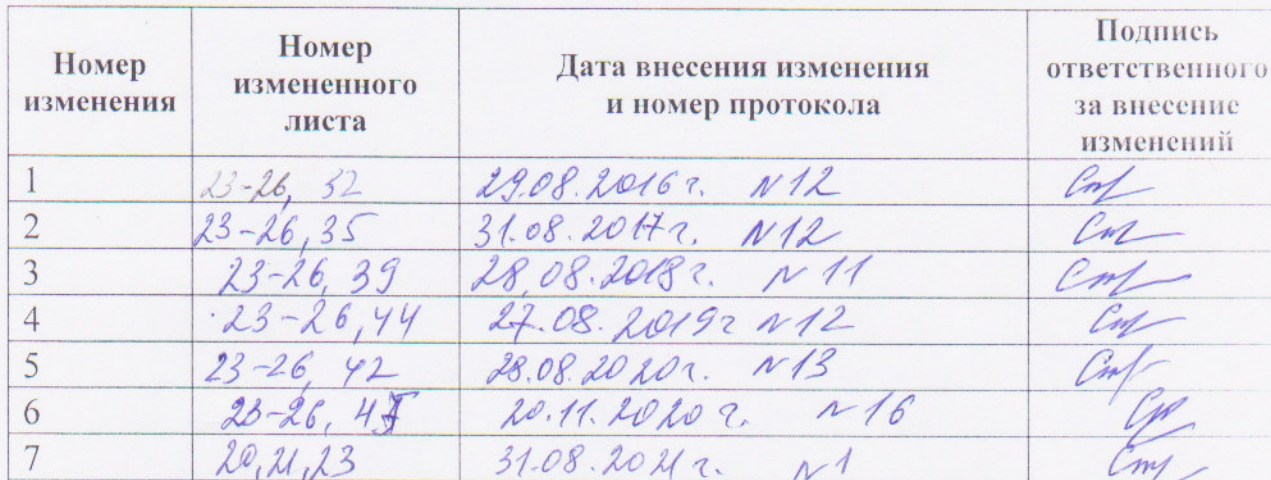 Номер изменения | Номер измененного листа | Дата внесения изменения и номер протокола | Подпись ответственного за внесение изменений
1 | 23-26, 32 | 29.08.2016 г. N12
2 | 23-26, 35 | 31.08.2017 г. N12
3 | 23-26, 39 | 28.08.2018 г. N 11
4 | 23-26, 44 | 27.08.2019 г N12
5 | 23-26, 42 | 28.08.2020 г. N13
6 | 23-26, | 20.11.2020 г. N16
7 | 20, 21, 23 | 31.08.2021 г. N1